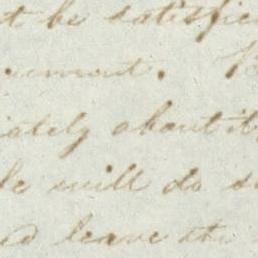 t be satisfie
ement.
iately about it
le will do s
d leave the